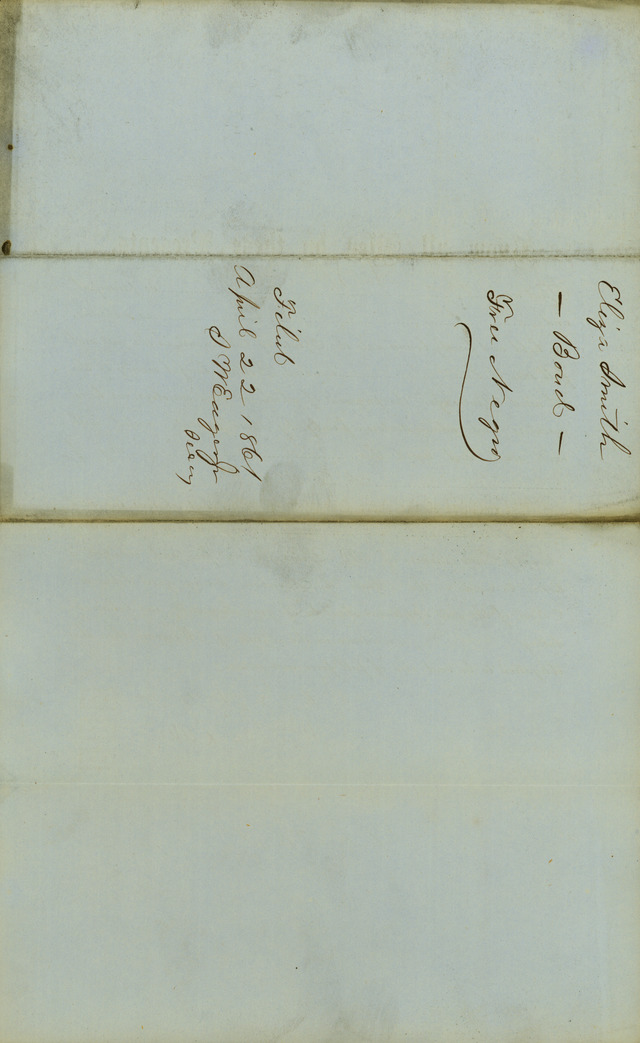 Eliza Smith
— Bond —
Free Negro
Filed
April 22 1861
S M Eager Jr